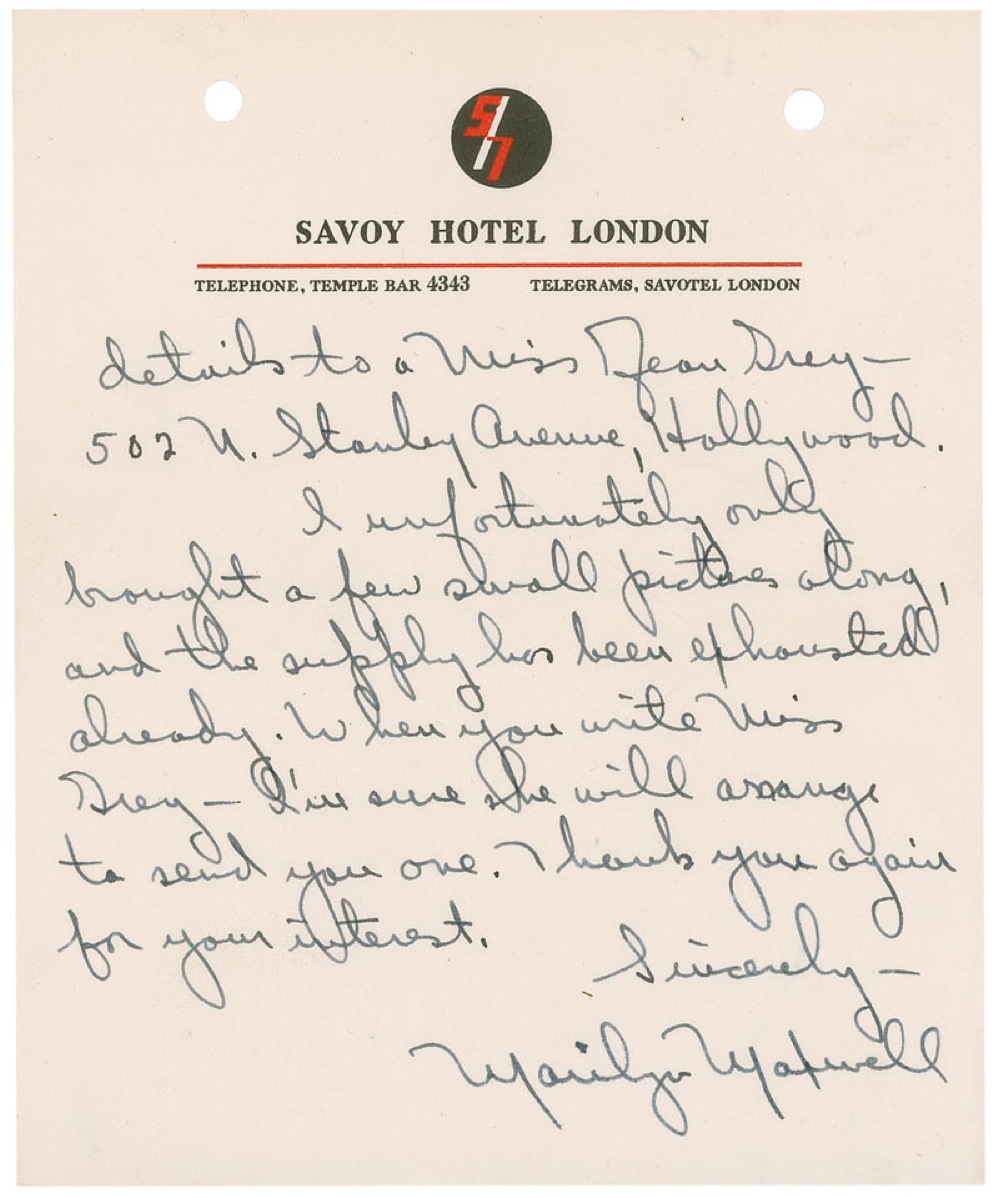 S
SAVOY HOTEL LONDON
TELEPHONE, TEMPLE BAR 4343 TELEGRAMS, SAVOTEL LONDON
details to a Miss Jean Grey—
502 N. Stanley Avenue, Hollywood.
I unfortunately only
brought a few small pictures along,
and the supply has been exhausted
already. When you write Miss
Grey — I'm sure she will arrange
to send you one. Thank you again
for your interest.
Sincerely —
Marilyn Maxwell